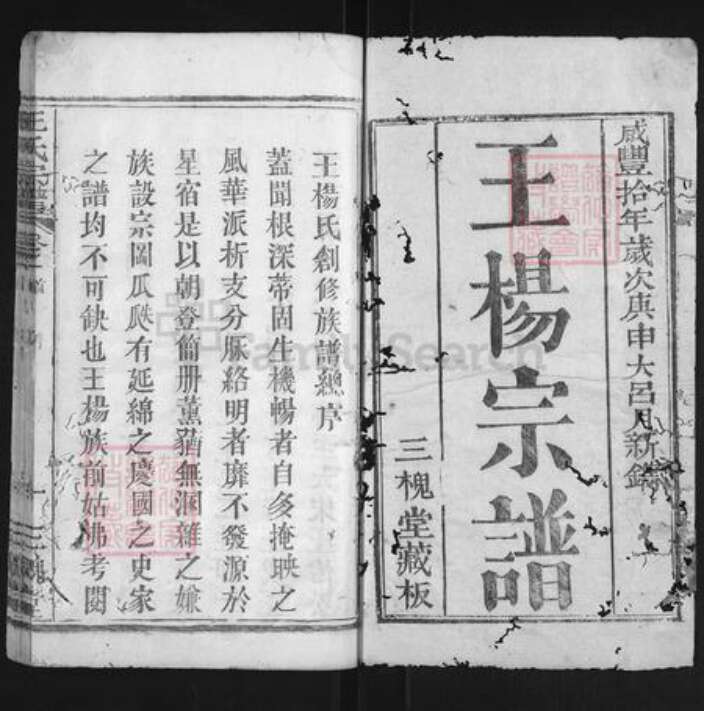 咸豐拾年歲次庚申大呂月新鐫
王楊宗譜
三槐堂藏板
王楊氏創修族譜總序
蓋聞根深蒂固生機暢者自多掩映之
風華派析支分脈絡明者靡不發源於
星宿是以朝登簡册薰蕕無溷雜之嫌
族設宗圖瓜瓞有延綿之慶國之史家
之譜均不可缺也王楊族前姑沸考閱
FamilySearch